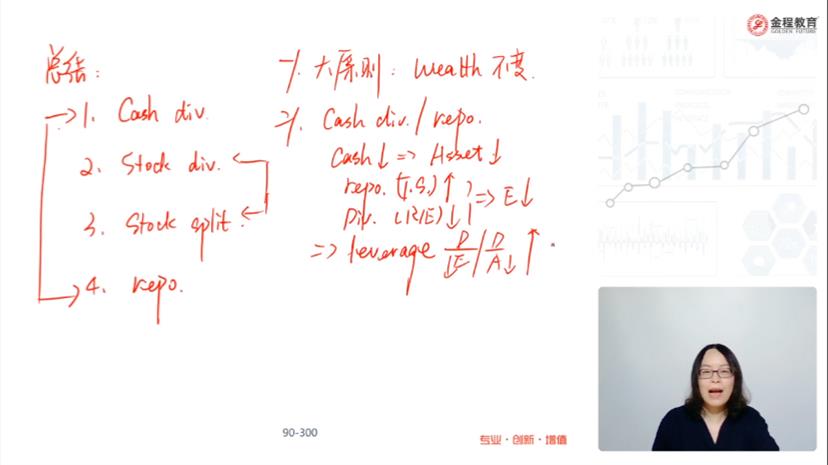 金程教育
GOLDEN FUTURE
总结:
1. Cash div.
2. Stock div.
3. Stock split.
4. repo.
1. 大原则: Wealth 不变.
2. Cash div. / repo.
Cash↓ => Asset↓
repo. (T.S.)↑ => E↓
Div. (R/E)↓
=> leverage D/E↓ / D/A↓ ↑
90-300
专业·创新·增值